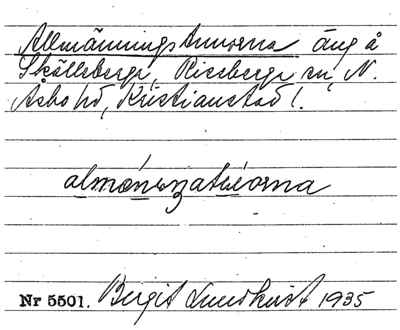 Allmänningstuvorna äng å
Skälleberga, Riseberga sn, N.
Åsbo hd, Kristianstad l.
Nr 5501. Birgit Lundkvist 1935